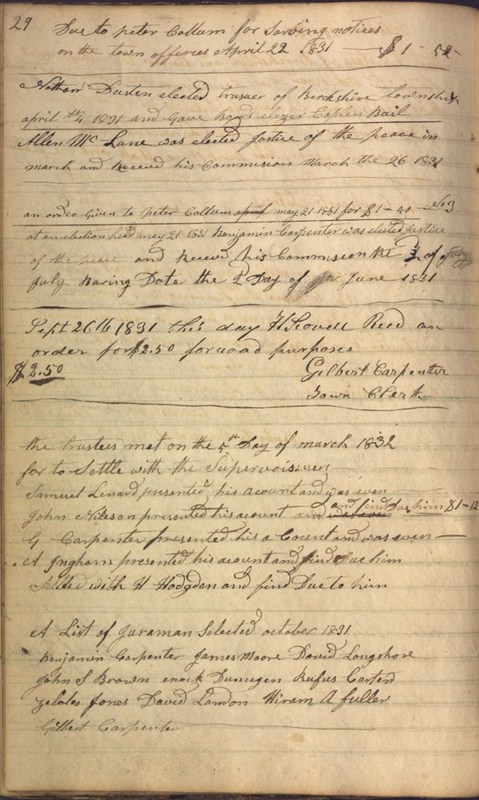 29
Due to peter Collum for Sarving notices
on the town officers April 22 1831 — $1 - 52
Nathan Dusten elected trusuer of Berkshire township
april 4 1831 and Gave Bond Bail
Allen Mc Lane was elected Justice of the peace in
march and Receved his Commision March the 26 1831
an order Given to peter Collum april may 21 1831 for $1-40 — No 3
at an election held may 21 1831 Benjamin Carpenter was elected Justice
of the peace and Receved his Commision the 2 of July
July Baring Date the 2 Day of June 1831
Sept 26th 1831 this day H Scovell Recd an
order for $2.50 for road purposes
$2.50 Gilbert Carpenter
Town Clerk
the trustees met on the 5th Day of march 1832
for to Sottle with the Supervoisers
Samuel Lenard presented his acount and was even
John Nilson presented his acount and find Due him $1-12
G Carpenter presented his a Count and was even —
A Ingham presented his acount and find Due him
Setled with H Hodgden and find Due to him
A List of Juraman Selected october 1831
Benjamin Carpenter James Moore David Longshore
John S Brown enock Dunnigen Rufus Carter
Zelotes Jones David Landon Hiram A fuller
Gilbert Carpenter